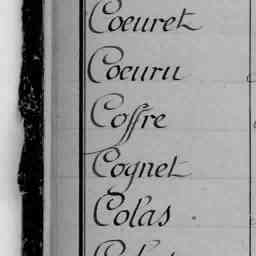 Coeuret
Coeuru
Coffre
Cognet
Colas